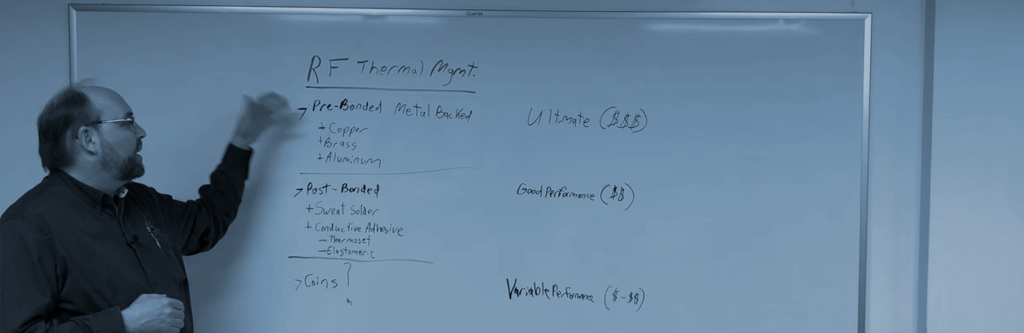 Quartet
RF Thermal Mgmt.
> Pre-Bonded Metal Backed
Ultimate ($$$)
+ Copper
+ Brass
+ Aluminum
> Post-Bonded
Good Performance ($$)
+ Sweat Solder
+ Conductive Adhesive
- Thermoset
- Elastomeric
> Coins
Variable Performance ($-$$)